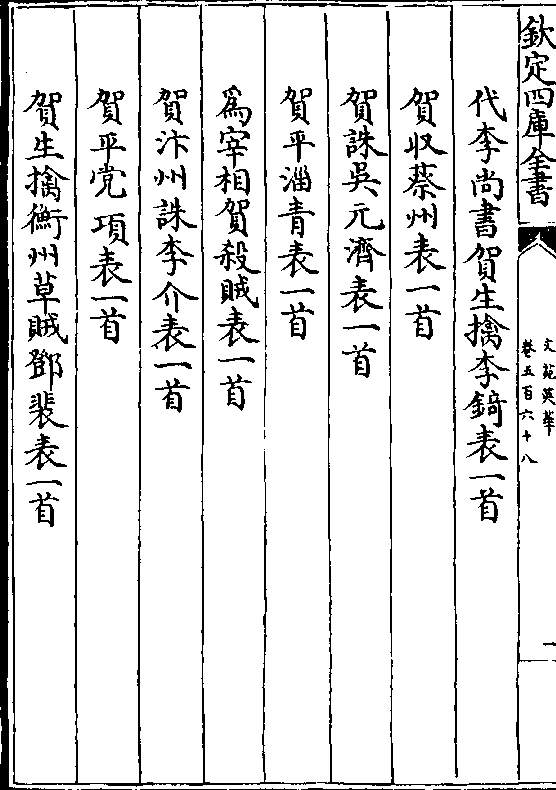 欽定四庫全書
文苑英華
卷五百六十八
一
代李尚書賀生擒李錡表一首
賀収蔡州表一首
賀誅吳元濟表一首
賀平淄青表一首
為宰相賀殺賊表一首
賀汴州誅李介表一首
賀平党項表一首
賀生擒衡州草賊鄧裴表一首